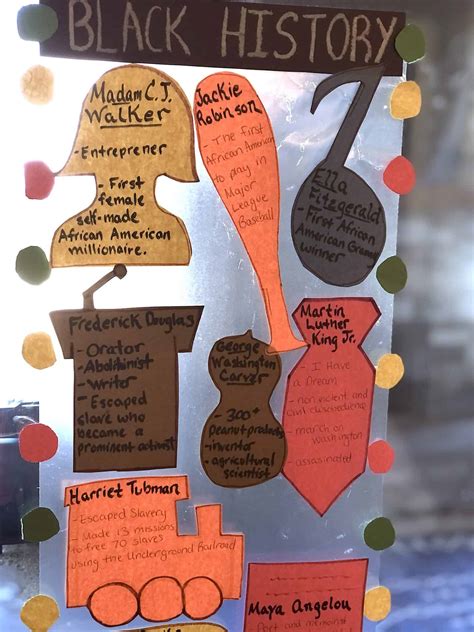 BLACK HISTORY
Madam C.J.
Walker
- Entreprener
- First
female
self-made
African American
millionaire.
Jackie
Robinson
- The first
African American
to play in
Major
League
Baseball
Ella
Fitzgerald
- First African
American Grammy
winner
Frederick Douglas
- Orator
- Abolitionist
- Writer
- Escaped
slave who
became a
prominent activist
George
Washington
Carver
- 300+
peanut products
- inventor
- agricultural
scientist
Martin
Luther
King Jr.
- I Have
a Dream
- nonviolent and
civil disobedience
- march on
Washington
- assassinated
Harriet Tubman
- Escaped Slavery
- Made 13 missions
to free 70 slaves
using the Underground Railroad
Maya Angelou
- Poet and memoirist